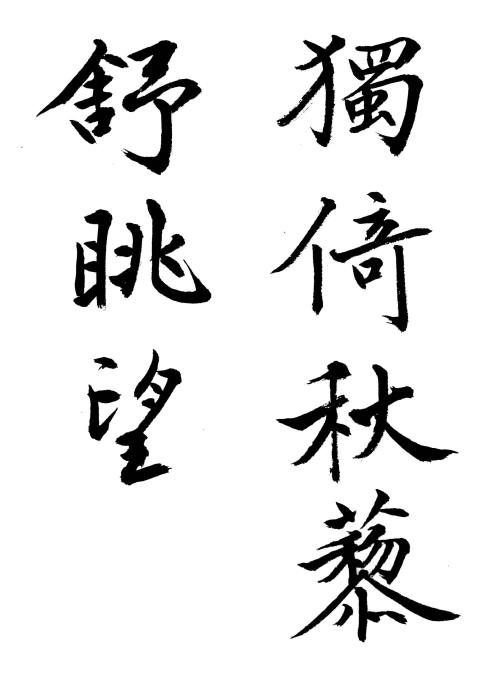 獨倚秋藜
舒眺望